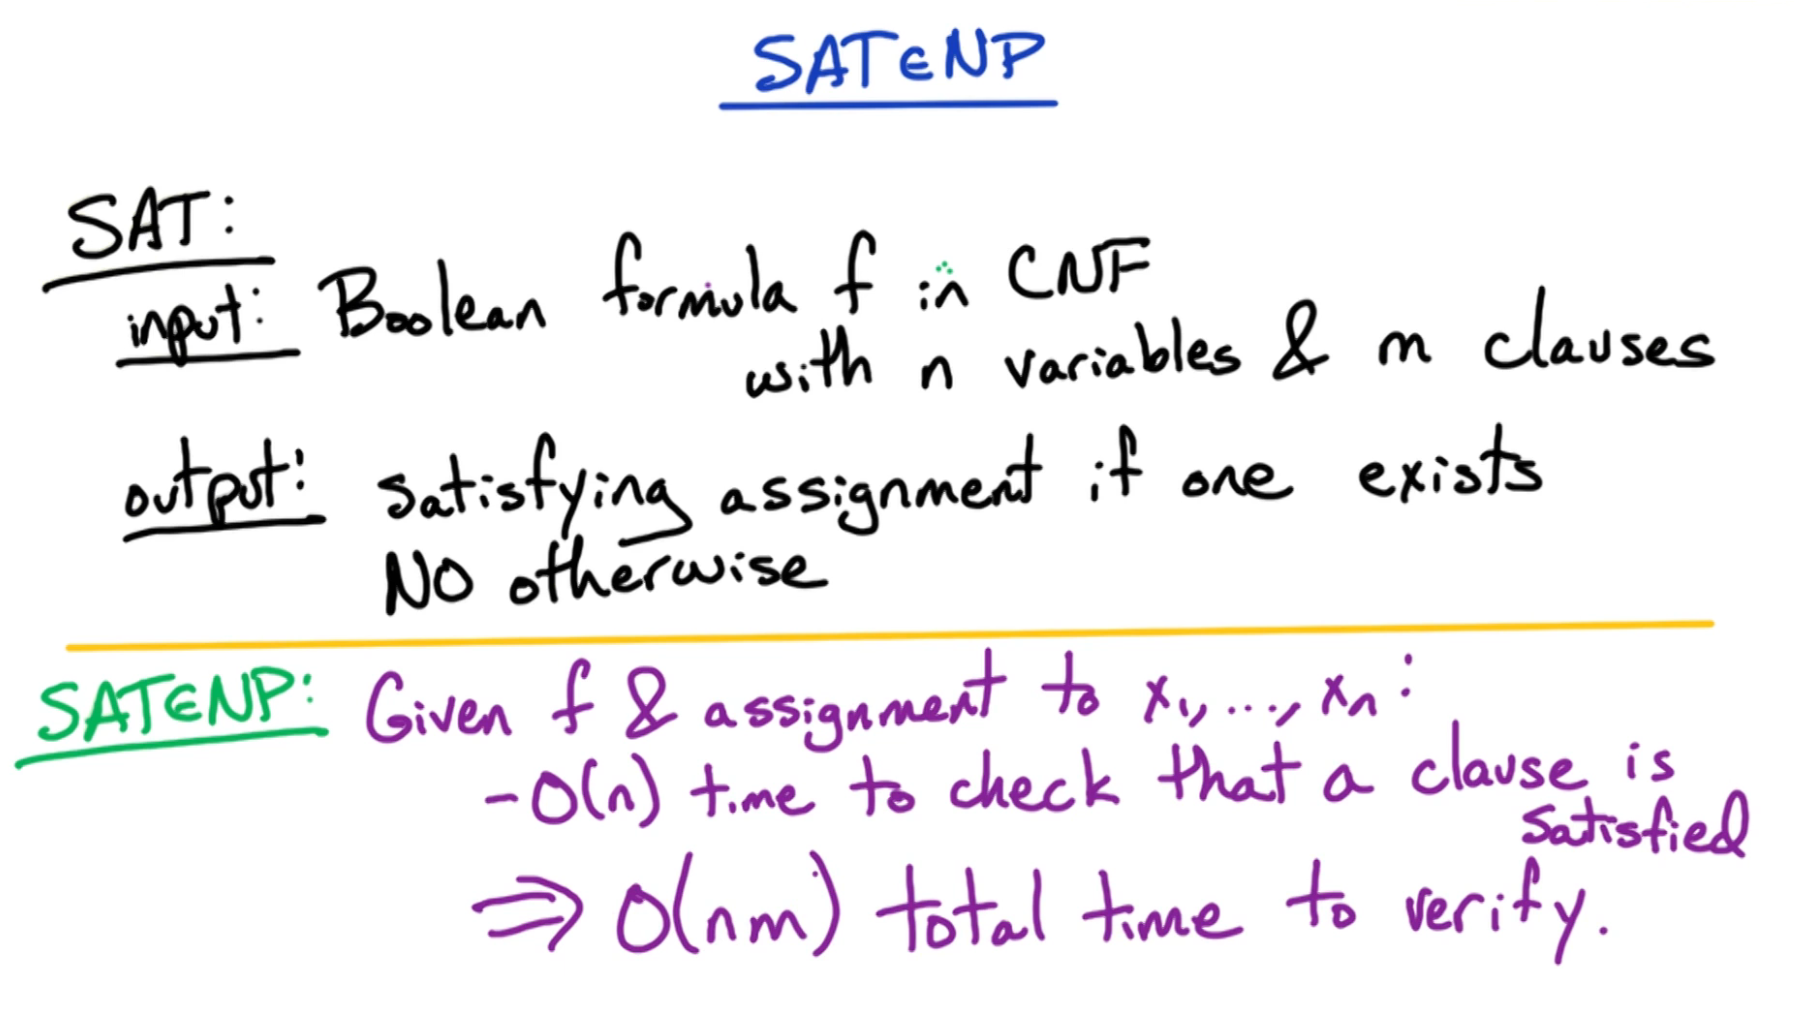 SAT∈NP
SAT:
input: Boolean formula f in CNF
with n variables & m clauses
output: satisfying assignment if one exists
NO otherwise
SAT∈NP: Given f & assignment to x₁, ..., xₙ:
- O(n) time to check that a clause is
satisfied
⇒ O(nm) total time to verify.